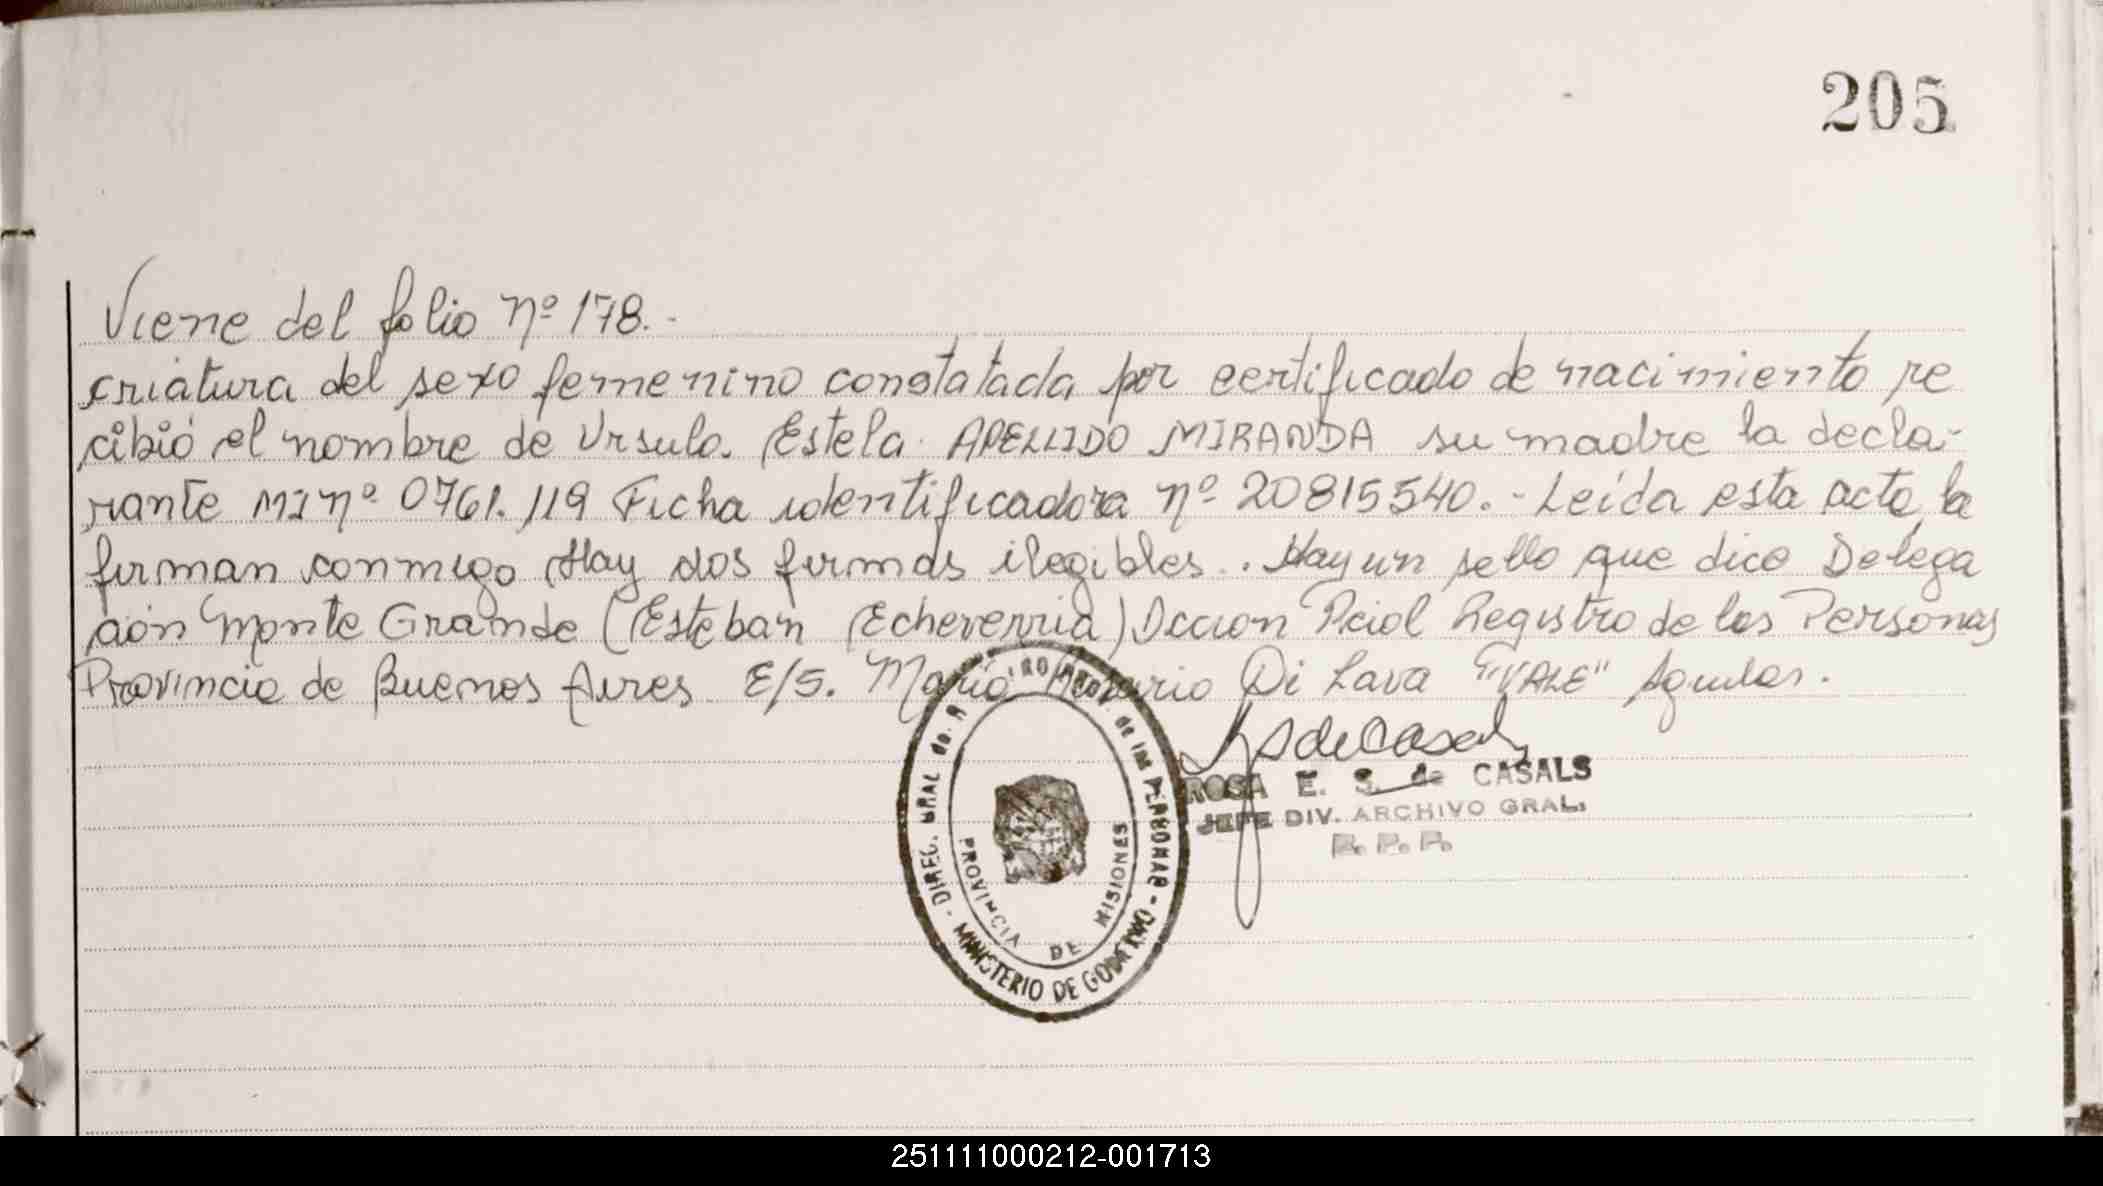 205
Viene del folio nº 178.-
criatura del sexo femenino constatada por certificado de nacimiento re
cibió el nombre de Ursula Estela APELLIDO MIRANDA su madre la decla-
rante MI nº 0761.119 Ficha identificadora nº 20815540.- Leída esta acta, la
firman conmigo Hay dos firmas ilegibles.. Hay un sello que dice Delega
ción Monte Grande (Esteban Echeverria) Dccion Pciol Registro de las Personas
Provincia de Buenos Aires. E/S. Di Lava "VALE"
ROSA E. S. de CASALS
JEFE DIV. ARCHIVO GRAL.
R. P. P.
DIREC. GRAL de las PERSONAS - MINISTERIO DE GOBIERNO -
PROVINCIA DE MISIONES
251111000212-001713